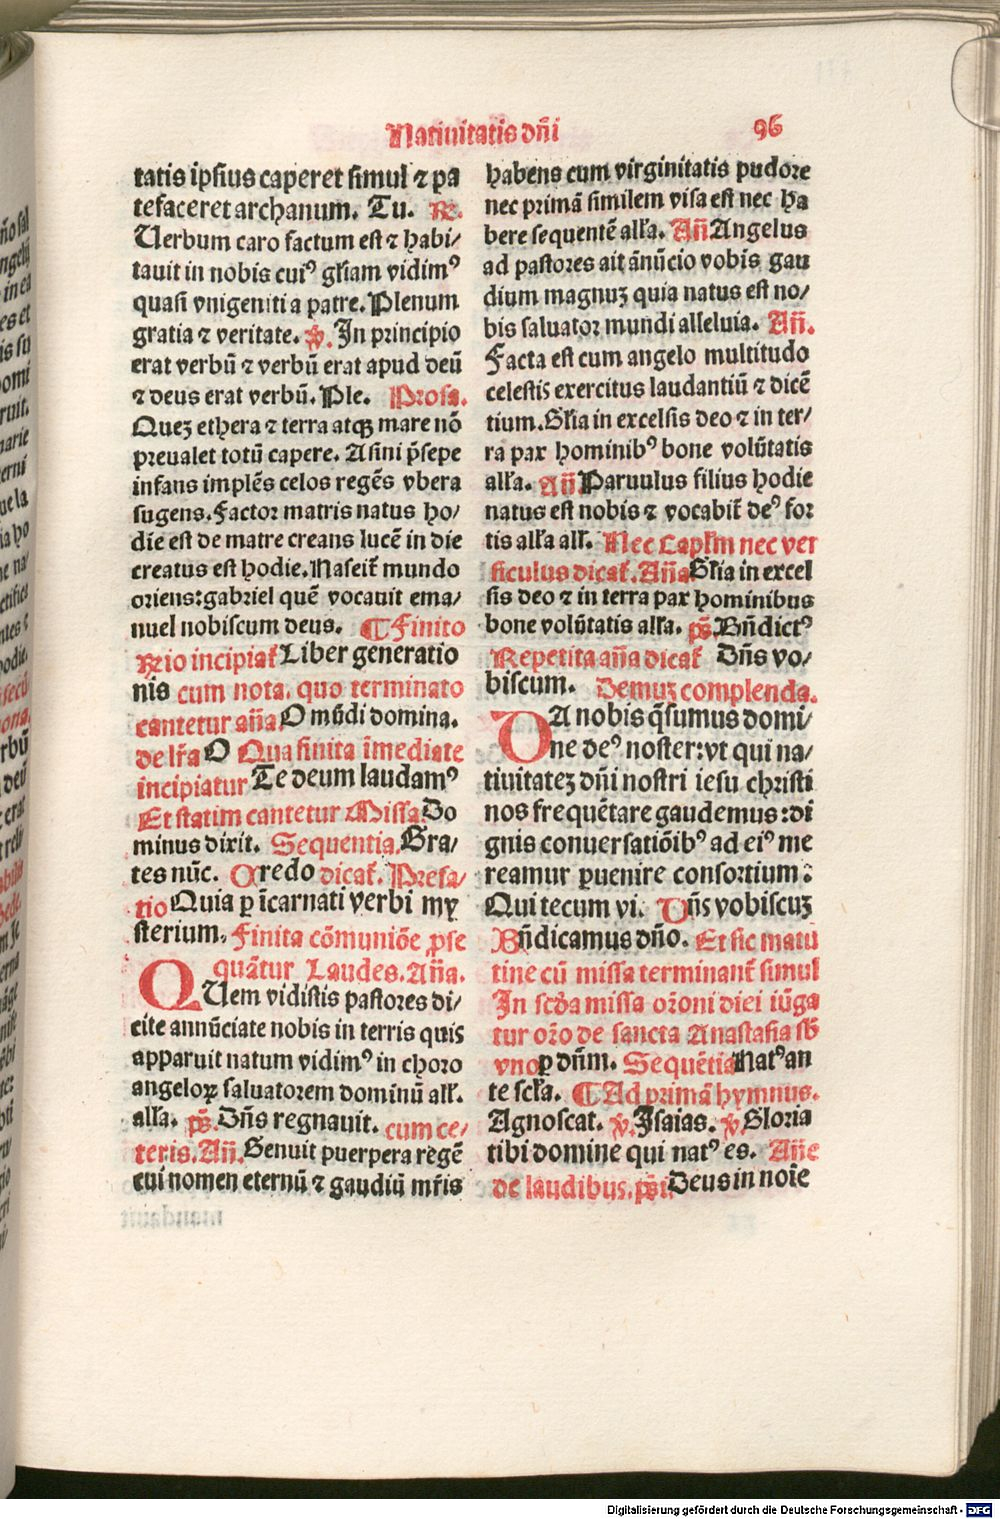 Natiuitatis dn̄i
96
tatis ipsius caperet simul ⁊ pa
tefaceret archanum. Tu. ℞.
Uerbum caro factum est ⁊ habi/
tauit in nobis cuiꝰ gl̄iam vidimꝰ
quasi vnigeniti a patre. Plenum
gratia ⁊ veritate. ℣. In principio
erat verbū ⁊ verbū erat apud deū
⁊ deus erat verbū. Ple. Prosa.
Quez ethera ⁊ terra atqꝫ mare nō
preualet totū capere. Asini p̄sepe
infans implēs celos regēs vbera
sugens. Factor matris natus ho/
die est de matre creans lucē in die
creatus est hodie. Naseit̄ mundo
oriens: gabriel quē vocauit ema/
nuel nobiscum deus. ¶ Finito
℞io incipiat̄ Liber generatio
nis cum nota. quo terminato
cantetur an̄a O mūdi domina.
de lr̄a O Qua finita īmediate
incipiatur Te deum laudamꝰ
Et statim cantetur Missa. Do
minus dixit. Sequentia. Gra/
tes nūc. Credo dicat̄. Prefa/
tio Quia ꝑ īcarnati verbi my
sterium. Finita cōmuniōe ꝓse
quātur Laudes. An̄a.
QUem vidistis pastores di/
cite annūciate nobis in terris quis
apparuit natum vidimꝰ in choro
angeloꝝ saluatorem dominū all̄.
all̄a. ps̄. Dn̄s regnauit. cum ce/
teris. An̄. Genuit puerpera regē
cui nomen eternū ⁊ gaudiū mr̄is
habens cum virginitatis pudore
nec primā similem visa est nec ha
bere sequentē all̄a. An̄ Angelus
ad pastores ait ānūcio vobis gau
dium magnuꝫ quia natus est no/
bis saluator mundi alleluia. An̄.
Facta est cum angelo multitudo
celestis exercitus laudantiū ⁊ dicē
tium. Gl̄ia in excelsis deo ⁊ in ter/
ra pax hominibꝰ bone volūtatis
all̄a. An̄. Paruulus filius hodie
natus est nobis ⁊ vocabit̄ deꝰ for
tis all̄a all̄. Nec Capl̄m nec ver
siculus dicat̄. An̄a Gl̄ia in excel
sis deo ⁊ in terra pax hominibus
bone volūtatis all̄a. ps̄. Bn̄dictꝰ
Repetita an̄a dicat̄ Dn̄s vo/
biscum. Demuꝫ complenda.
DA nobis q̄sumus domi/
ne deꝰ noster: vt qui na/
tiuitateꝫ dn̄i nostri iesu christi
nos frequētare gaudemus: di
gnis conuersatiōibꝰ ad eiꝰ me
reamur ꝑuenire consortium:
Qui tecum vi. Dn̄s vobiscuꝫ
Bn̄dicamus dn̄o. Et sic matu
tine cū missa terminant̄ simul
In sc̄da missa or̄oni diei iūga
tur or̄o de sancta Anastasia sb̄
vno ꝑ dn̄m. Sequētia Natꝰ an
te scl̄a. ¶ Ad primā hymnus.
Agnoscat. ℣. Isaias. ℣. Gloria
tibi domine qui natꝰ es. An̄e
de laudibus. ps̄i. Deus in noīe